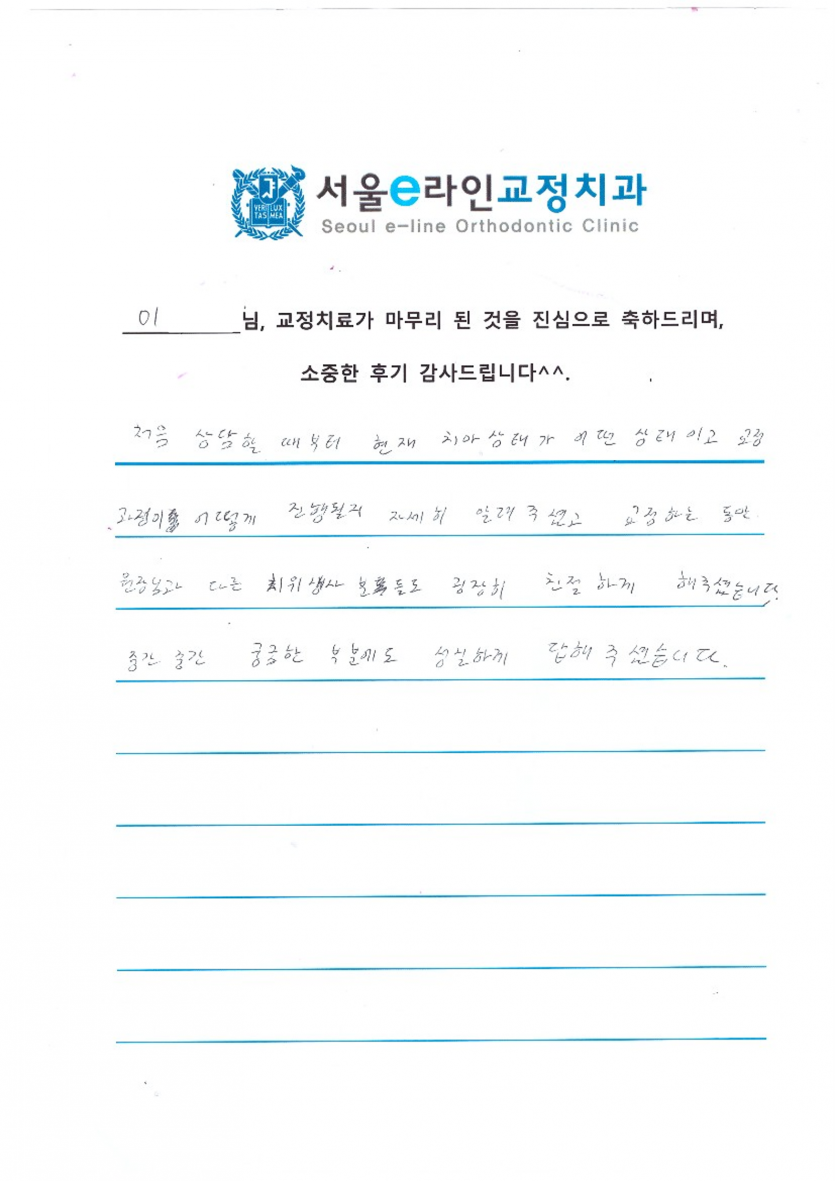 VERI LUX
TAS MEA
서울e라인교정치과
Seoul e-line Orthodontic Clinic
이 님, 교정치료가 마무리 된 것을 진심으로 축하드리며,
소중한 후기 감사드립니다^^.
처음 상담할 때부터 현재 치아상태가 어떤 상태이고 교정
과정이 어떻게 진행될지 자세히 알려주셨고 교정하는 동안
원장님과 다른 치위생사 분들도 굉장히 친절하게 해주셨습니다.
중간중간 궁금한 부분에도 성실하게 답해주셨습니다.